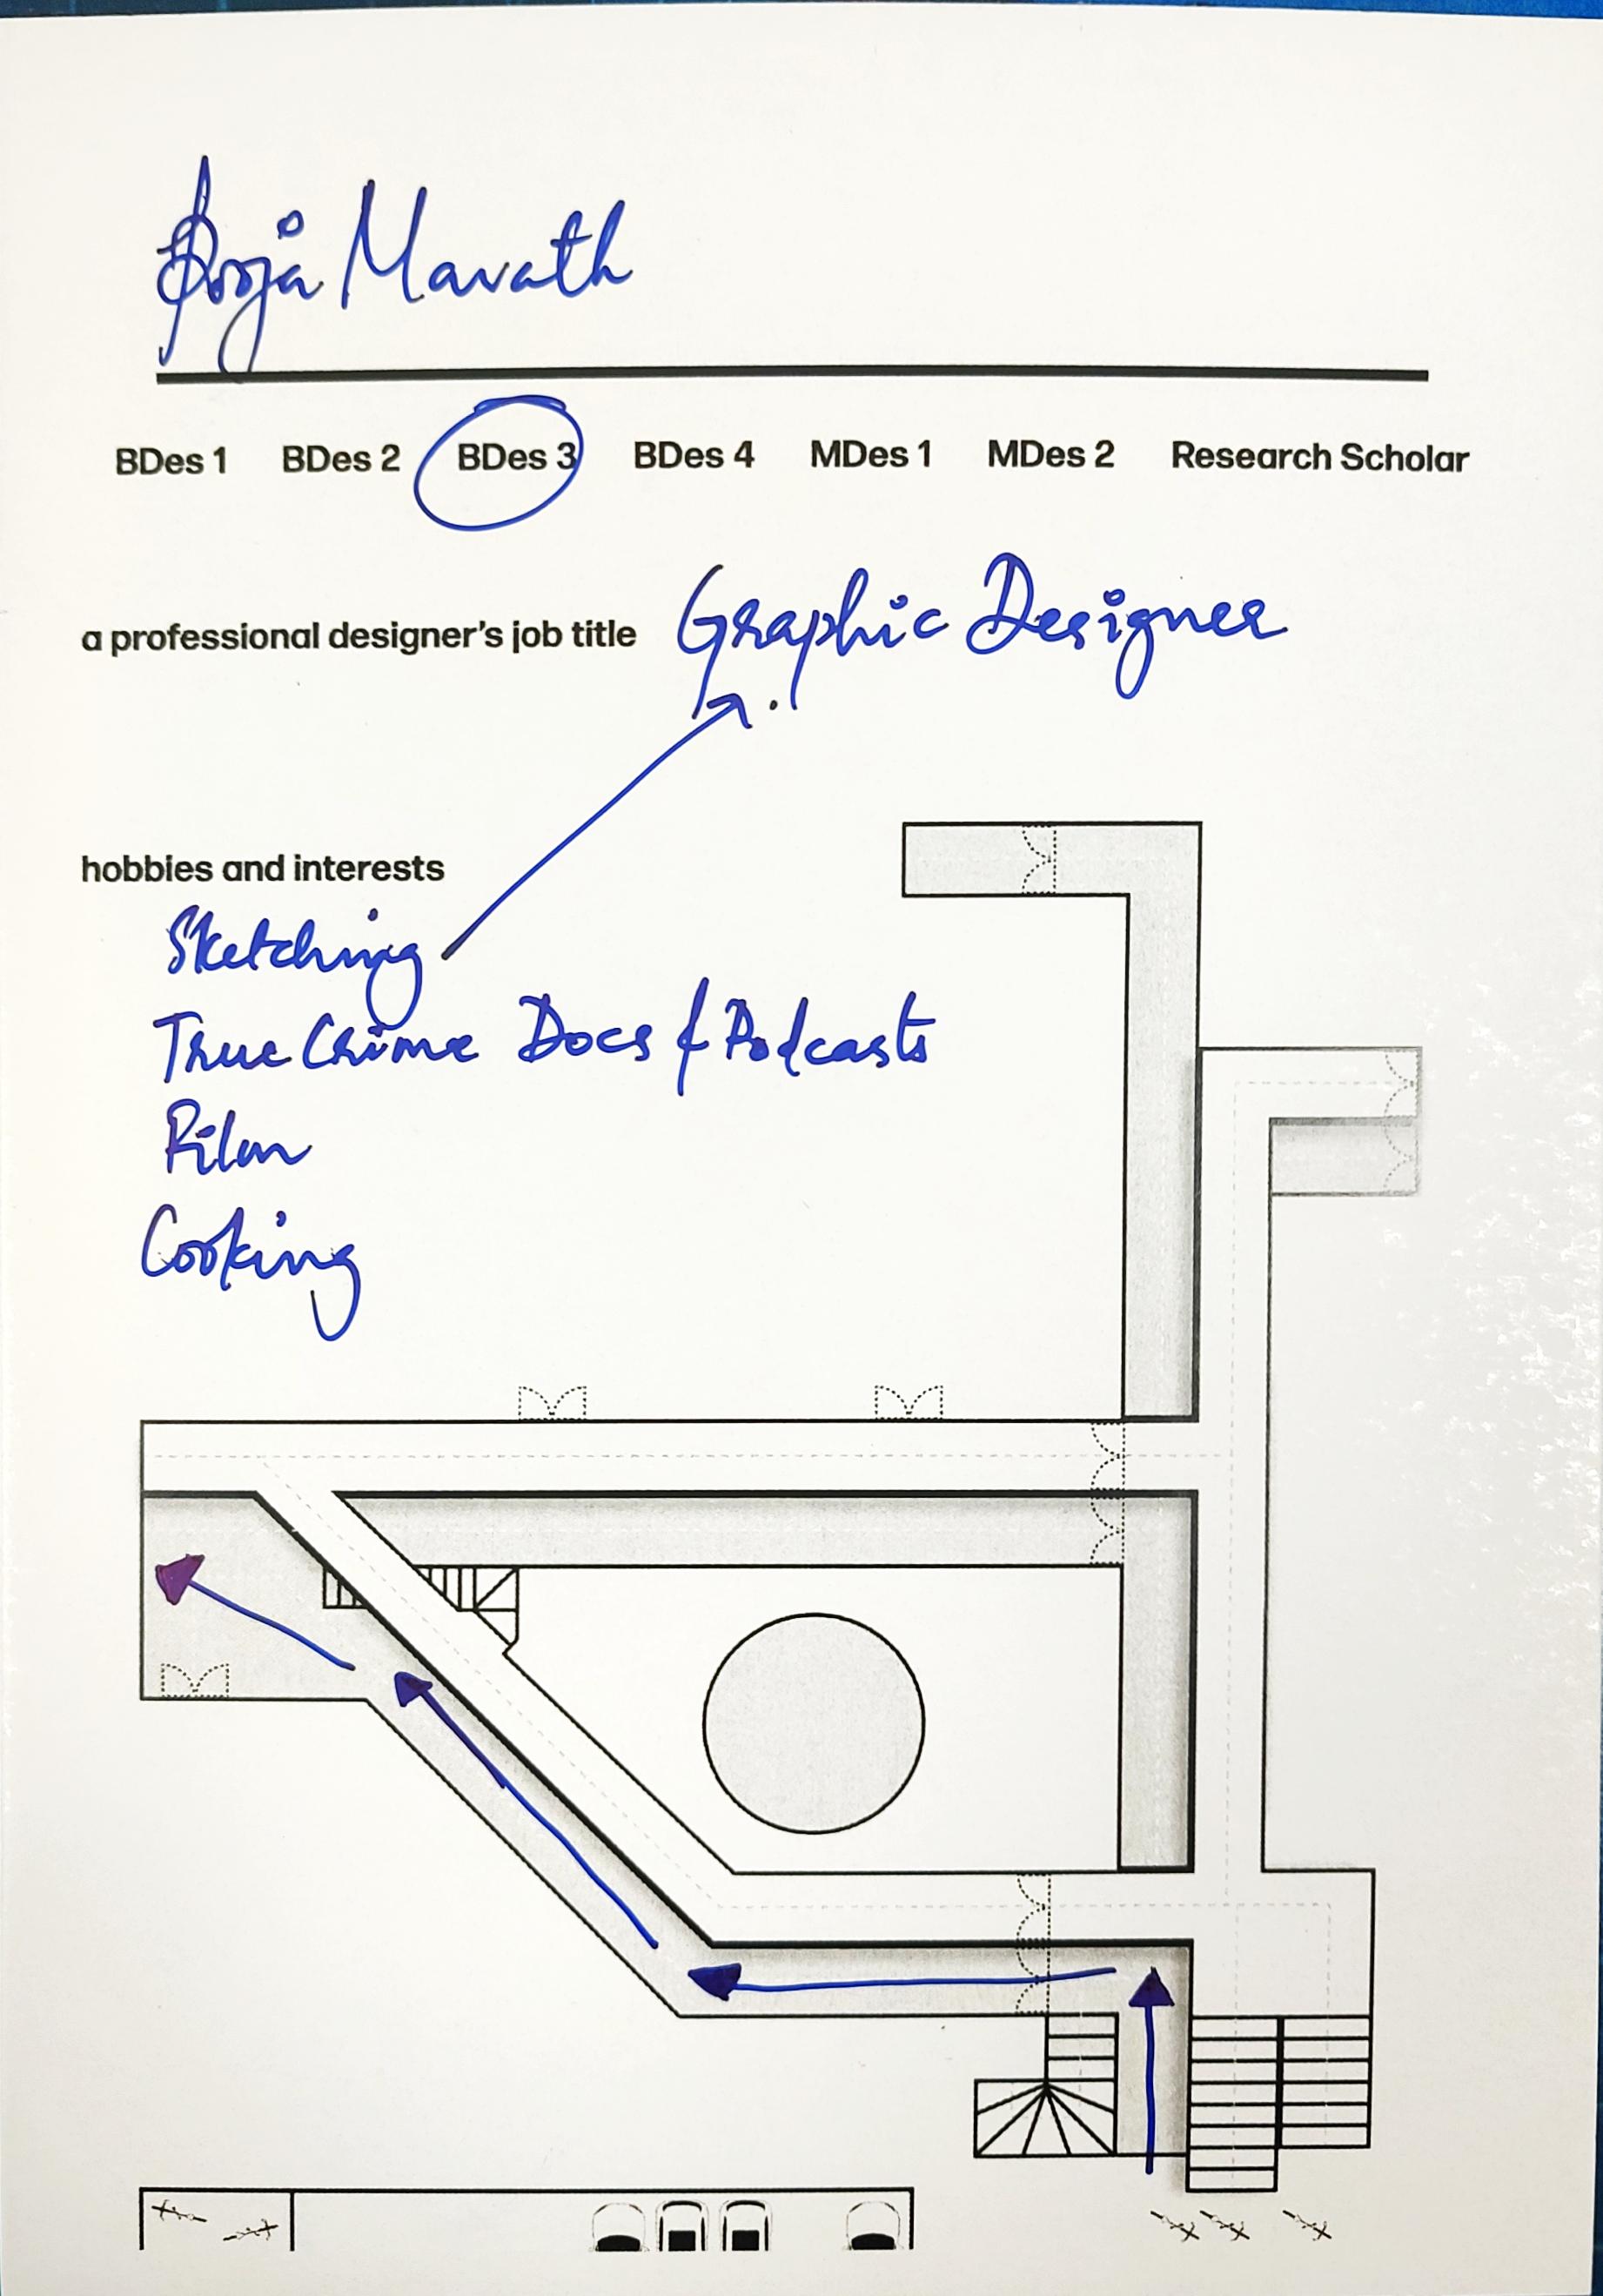 Pooja Mavath
BDes 1 BDes 2 BDes 3 BDes 4 MDes 1 MDes 2 Research Scholar
a professional designer's job title Graphic Designer
hobbies and interests
Sketching
True Crime Docs & Podcasts
Cooking